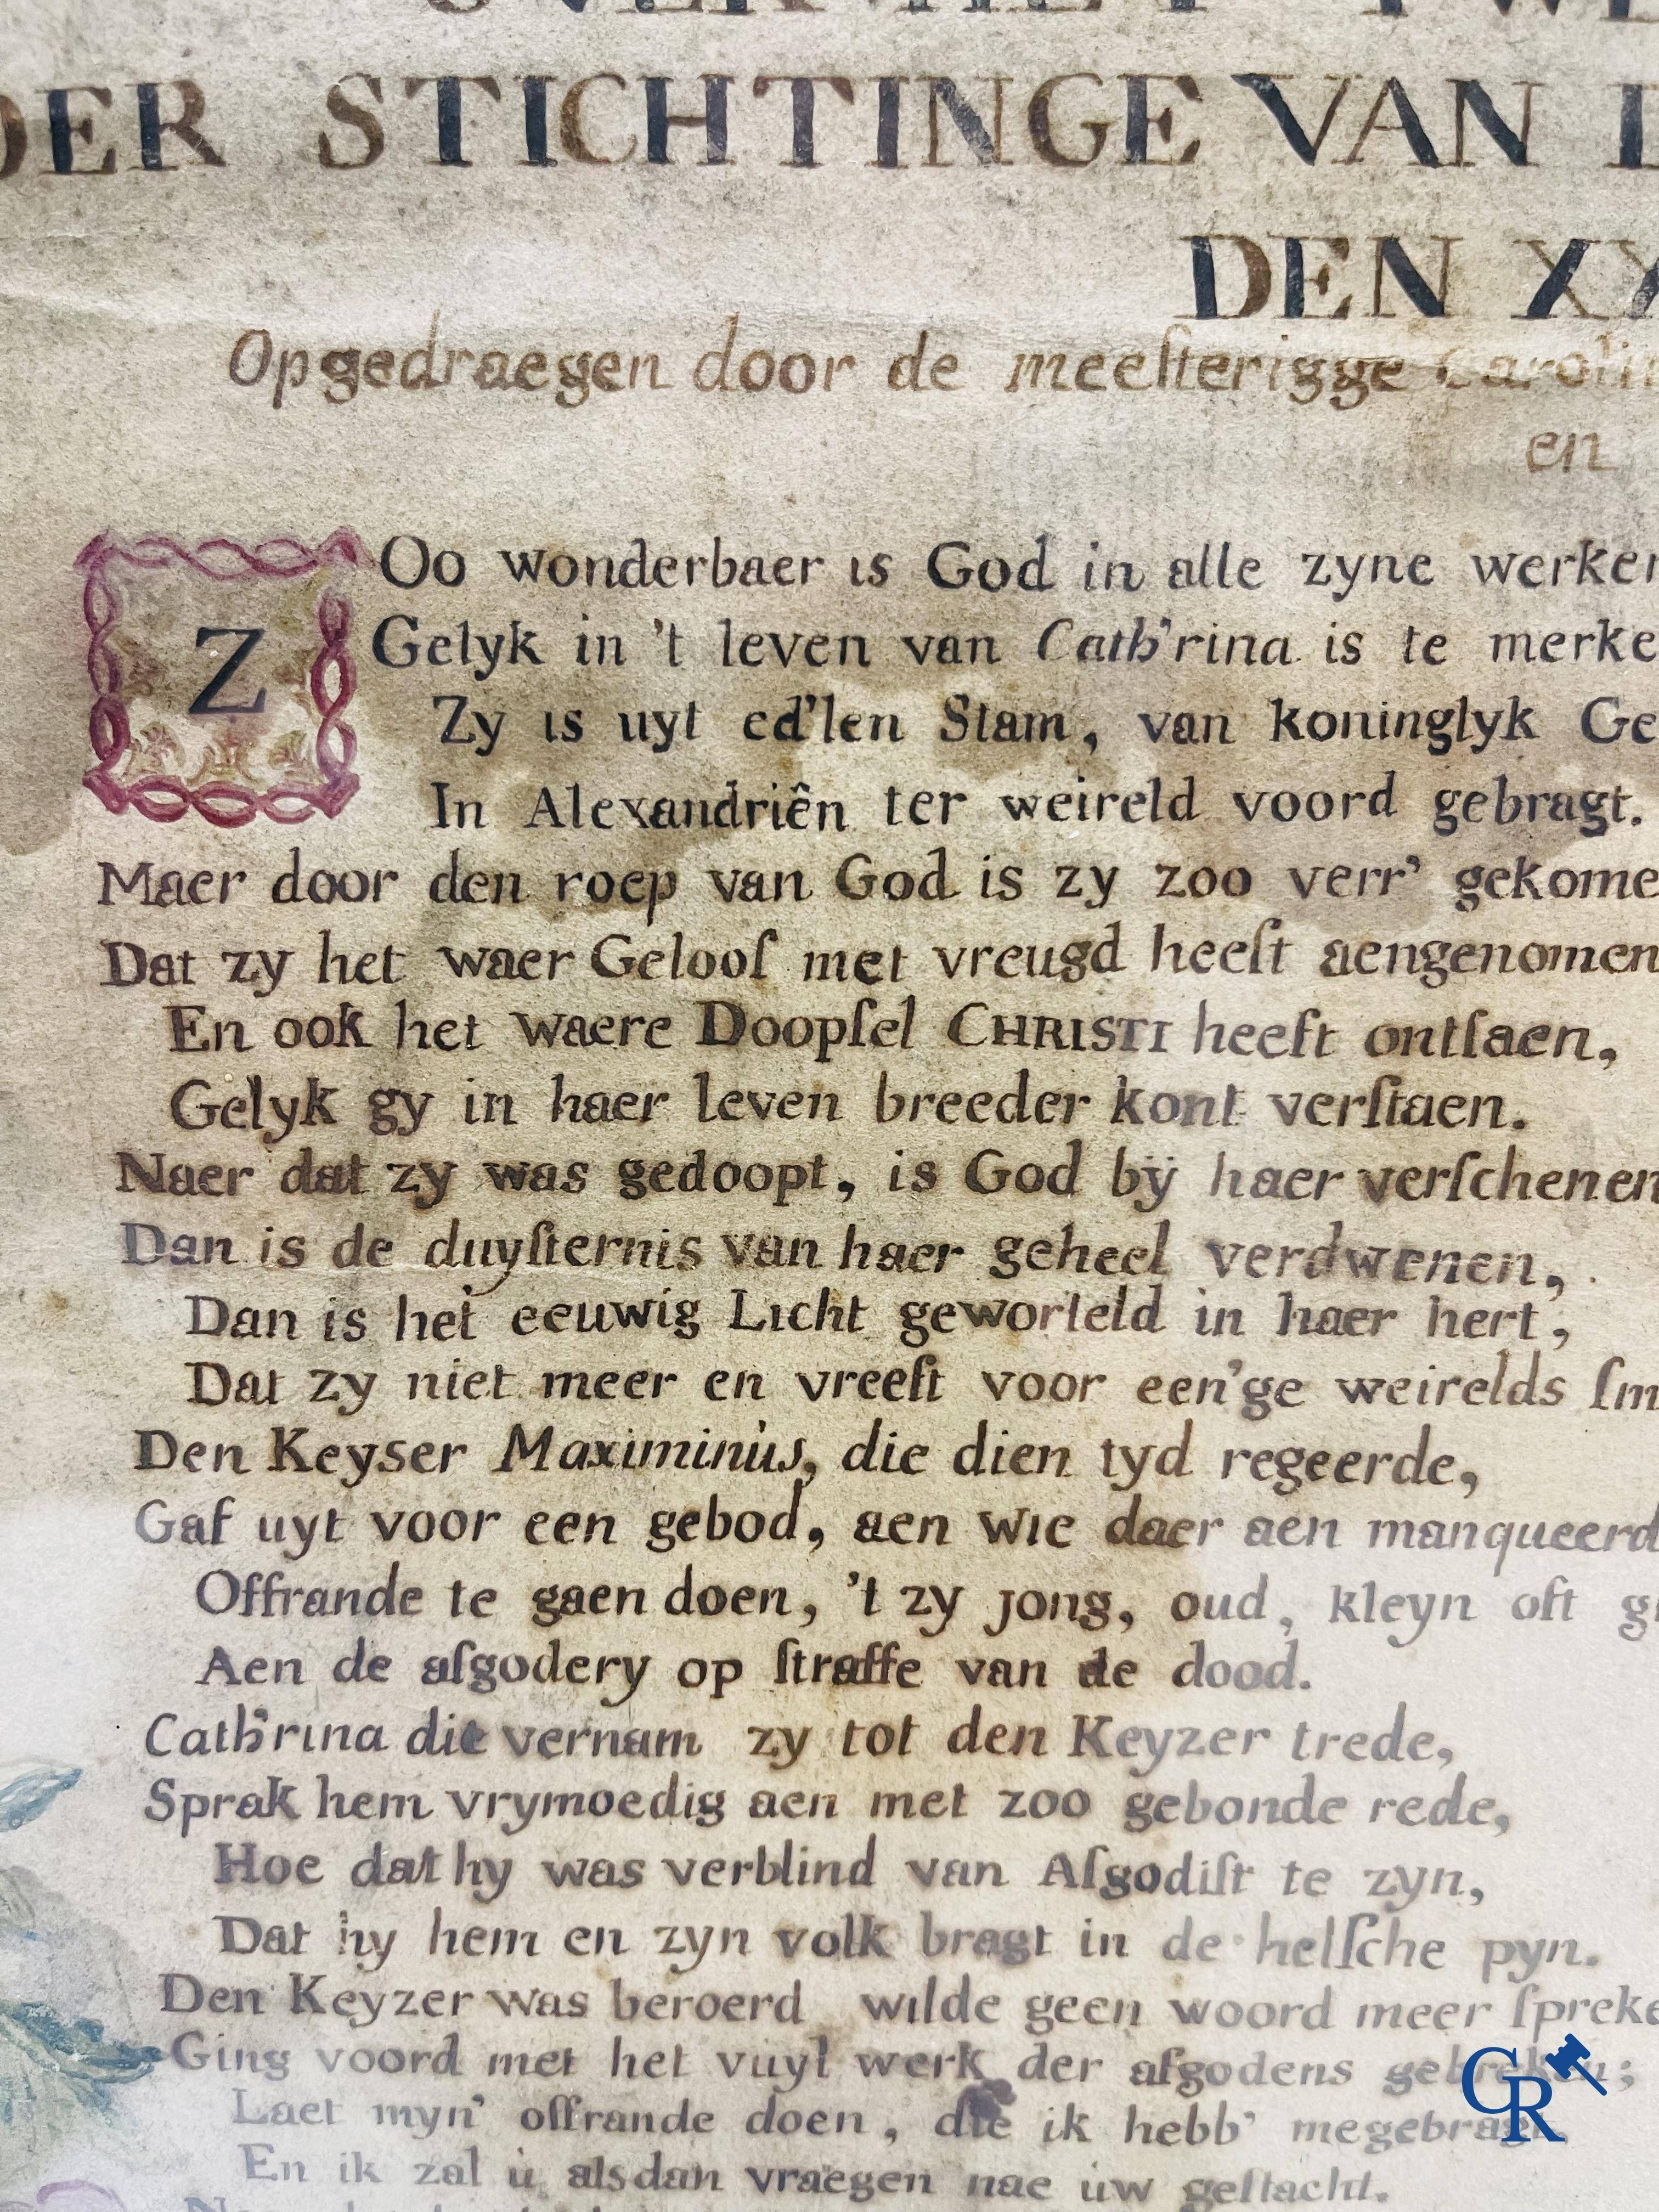 OVER HET TWE
DER STICHTINGE VAN D
DEN XX
Opgedraegen door de meeſterigge Carolin
en
ZOo wonderbaer is God in alle zyne werken
Gelyk in 't leven van Cath'rina is te merke
Zy is uyt ed'len Stam, van koninglyk Ge
In Alexandriën ter weireld voord gebragt.
Maer door den roep van God is zy zoo verr' gekome
Dat zy het waer Geloof met vreugd heeft aengenomen
En ook het waere Doopſel CHRISTI heeft ontfaen,
Gelyk gy in haer leven breeder kont verſtaen.
Naer dat zy was gedoopt, is God bÿ haer verſchenen
Dan is de duyſternis van haer geheel verdwenen,
Dan is het eeuwig Licht geworteld in haer hert,
Dat zy niet meer en vreeſt voor een'ge weirelds ſm
Den Keyser Maximinùs, die dien tyd regeerde,
Gaf uyt voor een gebod, aen wie daer aen manqueerd
Offrande te gaen doen, 't zy jong, oud, kleyn oft gr
Aen de afgodery op ſtraffe van de dood.
Cath'rina dit vernam zy tot den Keyzer trede,
Sprak hem vrymoedig aen met zoo gebonde rede,
Hoe dat hy was verblind van Afgodiſt te zyn,
Dat hy hem en zyn volk bragt in de helſche pyn.
Den Keyzer was beroerd wilde geen woord meer ſpreke
Ging voord met het vuyl werk der afgodens gebreken;
Laet myn' offrande doen, die ik hebb' megebragt,
En ik zal ù alsdan vraegen nae ùw geſlacht.
CR